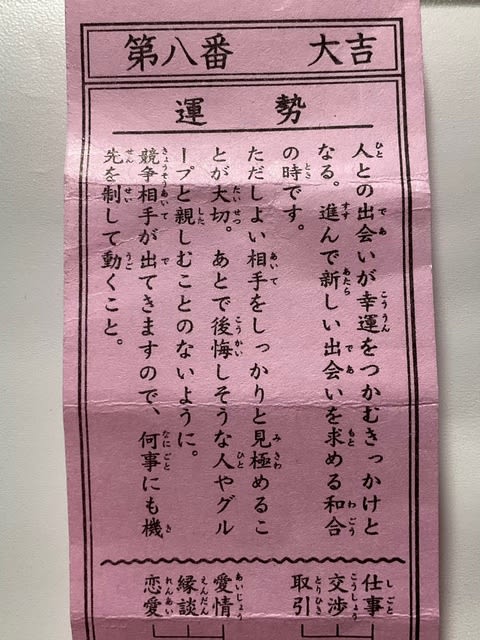 第八番　大吉
運　勢
人との出会いが幸運をつかむきっかけと
なる。進んで新しい出会いを求める和合
の時です。
ただしよい相手をしっかりと見極めるこ
とが大切。あとで後悔しそうな人やグル
ープと親しむことのないように。
競争相手が出てきますので、何事にも機
先を制して動くこと。
仕事
交渉
取引
愛情
縁談
恋愛